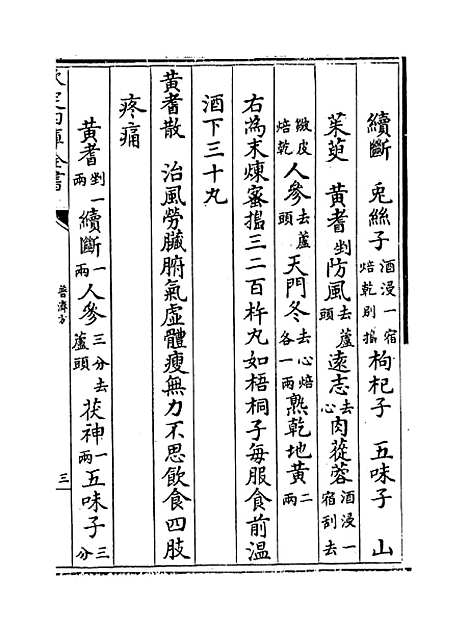 續斷　兎絲子酒浸一宿焙乾别搗枸杞子　五味子　山
茱萸　黄耆剉防風去蘆頭遠志去心肉蓯蓉酒浸一宿刮去
皴皮焙乾人參去蘆頭天門冬去心焙各一兩熟乾地黄二兩
右為末煉蜜搗三二百杵丸如梧桐子每服食前温
酒下三十丸
黄耆散　治風勞臟腑氣虚體瘦無力不思飲食四肢
疼痛
黄耆剉一兩續斷一兩人參三分去蘆頭茯神一兩五味子三分
欽定四庫全書
普濟方
三